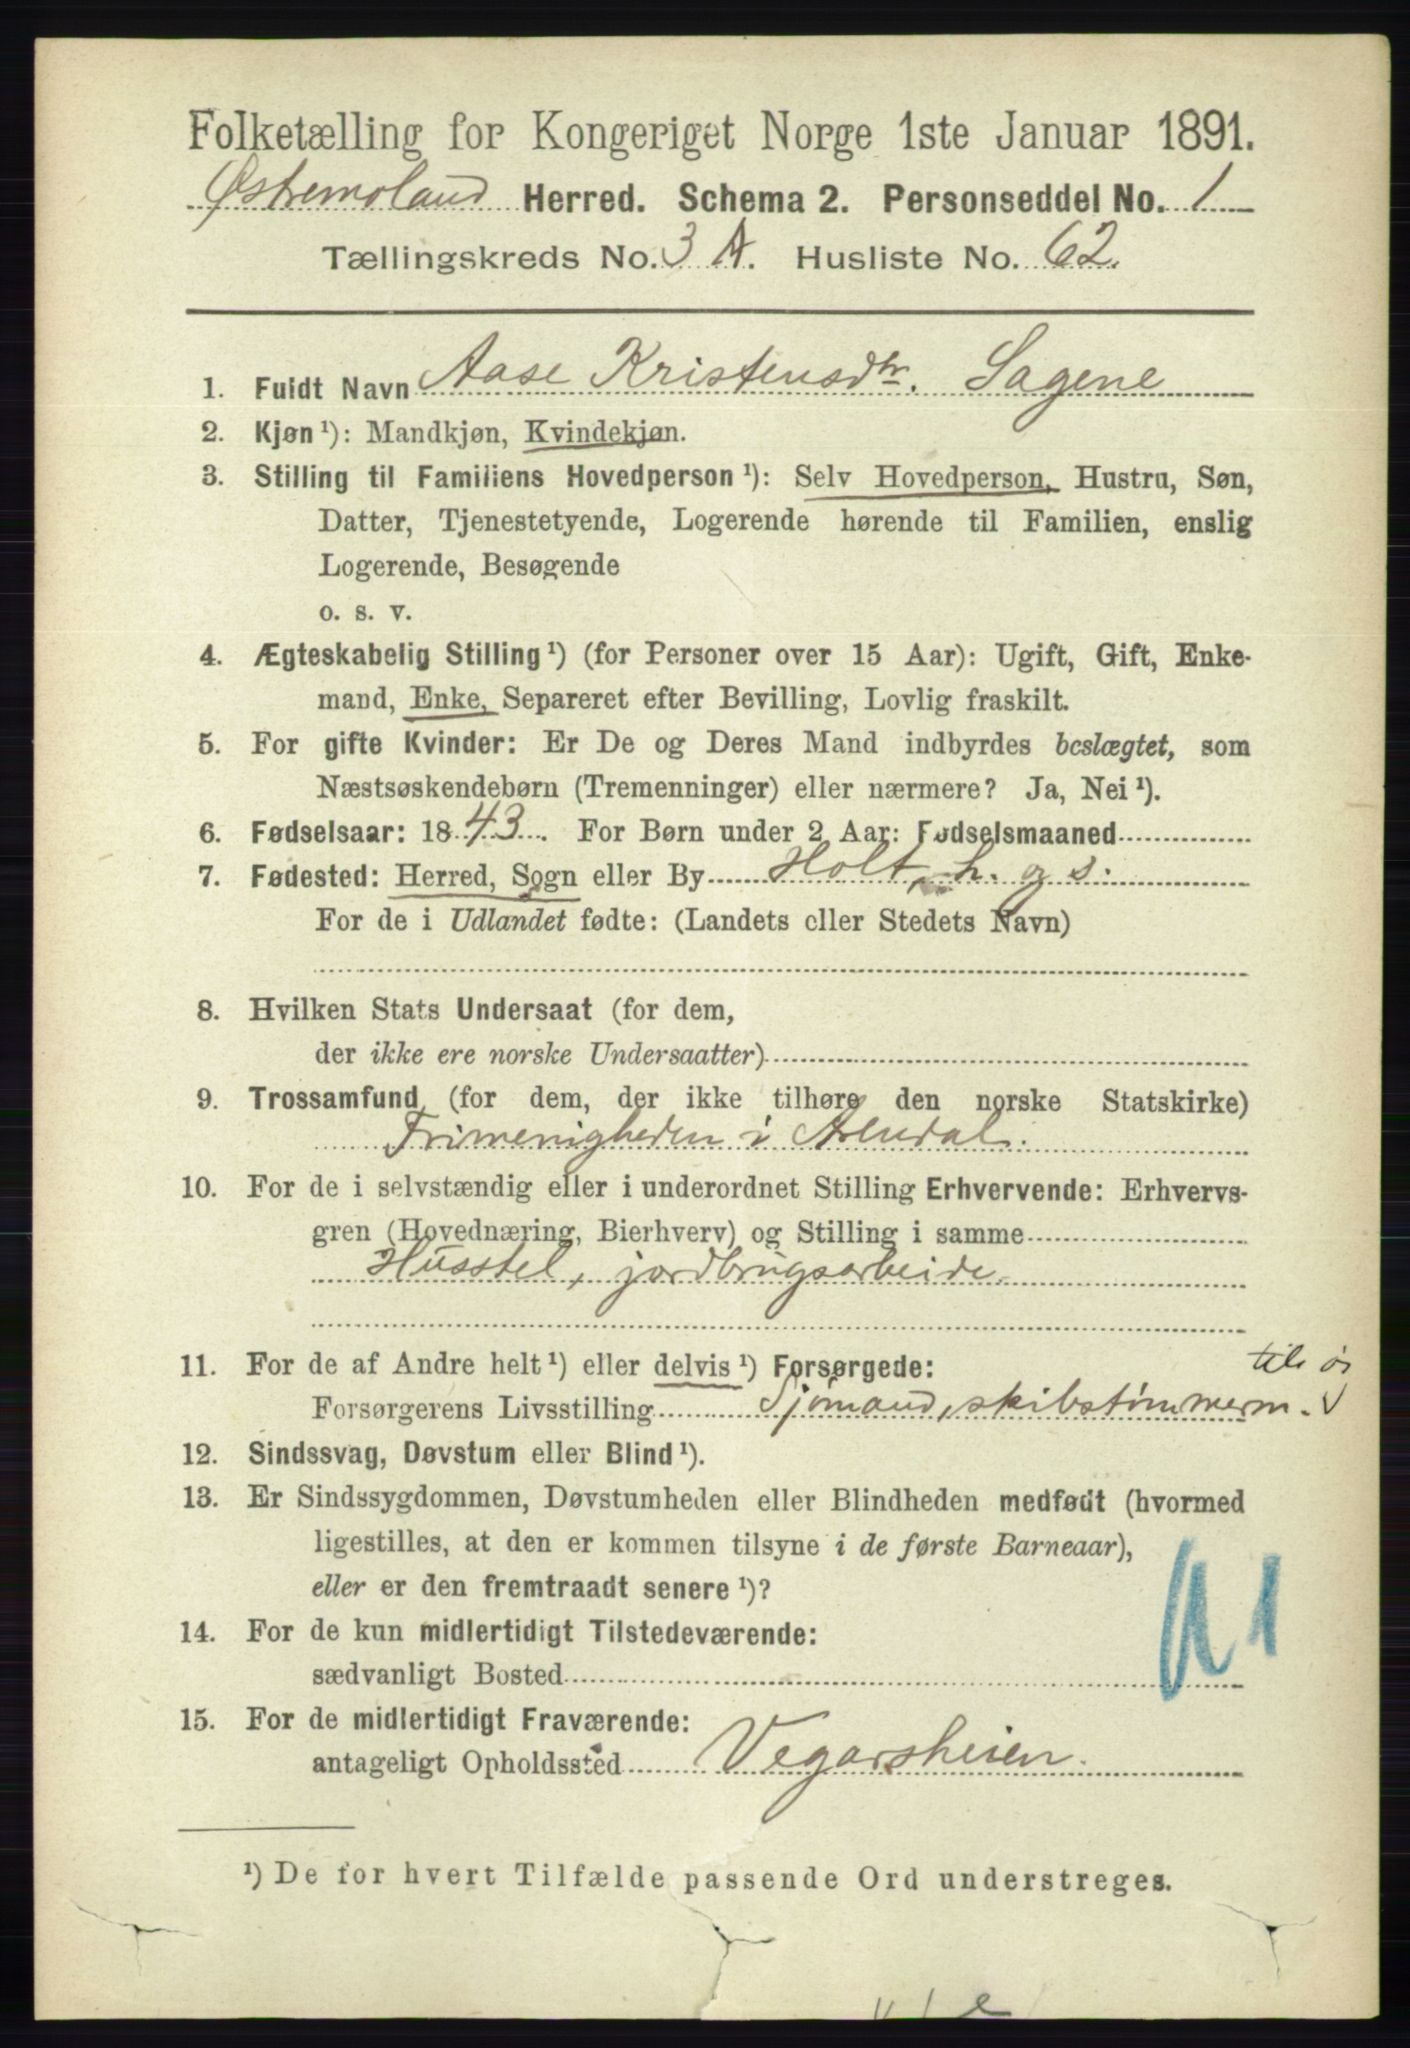 Folketælling for Kongeriget Norge 1ste Januar 1891.
Østremoland Herred. Schema 2. Personseddel No. 1
Tællingskreds No. 3 A. Husliste No. 62.
1. Fuldt Navn Aase Kristensdtr. Sagene
2. Kjøn ¹): Mandkjøn, Kvindekjøn.
3. Stilling til Familiens Hovedperson ¹): Selv Hovedperson, Hustru, Søn,
Datter, Tjenestetyende, Logerende hørende til Familien, enslig
Logerende, Besøgende
o. s. v.
4. Ægteskabelig Stilling ¹) (for Personer over 15 Aar): Ugift, Gift, Enke-
mand, Enke, Separeret efter Bevilling, Lovlig fraskilt.
5. For gifte Kvinder: Er De og Deres Mand indbyrdes beslægtet, som
Næstsøskendebørn (Tremenninger) eller nærmere? Ja, Nei ¹).
6. Fødselsaar: 1843. For Børn under 2 Aar: Fødselsmaaned
7. Fødested: Herred, Sogn eller By Holt, h. og s.
For de i Udlandet fødte: (Landets eller Stedets Navn)
8. Hvilken Stats Undersaat (for dem,
der ikke ere norske Undersaatter)
9. Trossamfund (for dem, der ikke tilhøre den norske Statskirke)
Frimenigheden i Arendal.
10. For de i selvstændig eller i underordnet Stilling Erhvervende: Erhvervs-
gren (Hovednæring, Bierhverv) og Stilling i samme
Husstel, jordbrugsarbeide.
11. For de af Andre helt ¹) eller delvis ¹) Forsørgede:
tils
Forsørgerens Livsstilling Sjømand, skibstømmerm.
12. Sindssvag, Døvstum eller Blind ¹).
13. Er Sindssygdommen, Døvstumheden eller Blindheden medfødt (hvormed
ligestilles, at den er kommen tilsyne i de første Barneaar),
eller er den fremtraadt senere ¹)?
14. For de kun midlertidigt Tilstedeværende:
sædvanligt Bosted
15. For de midlertidigt Fraværende:
antageligt Opholdssted Vegarsheien.
¹) De for hvert Tilfælde passende Ord understreges.